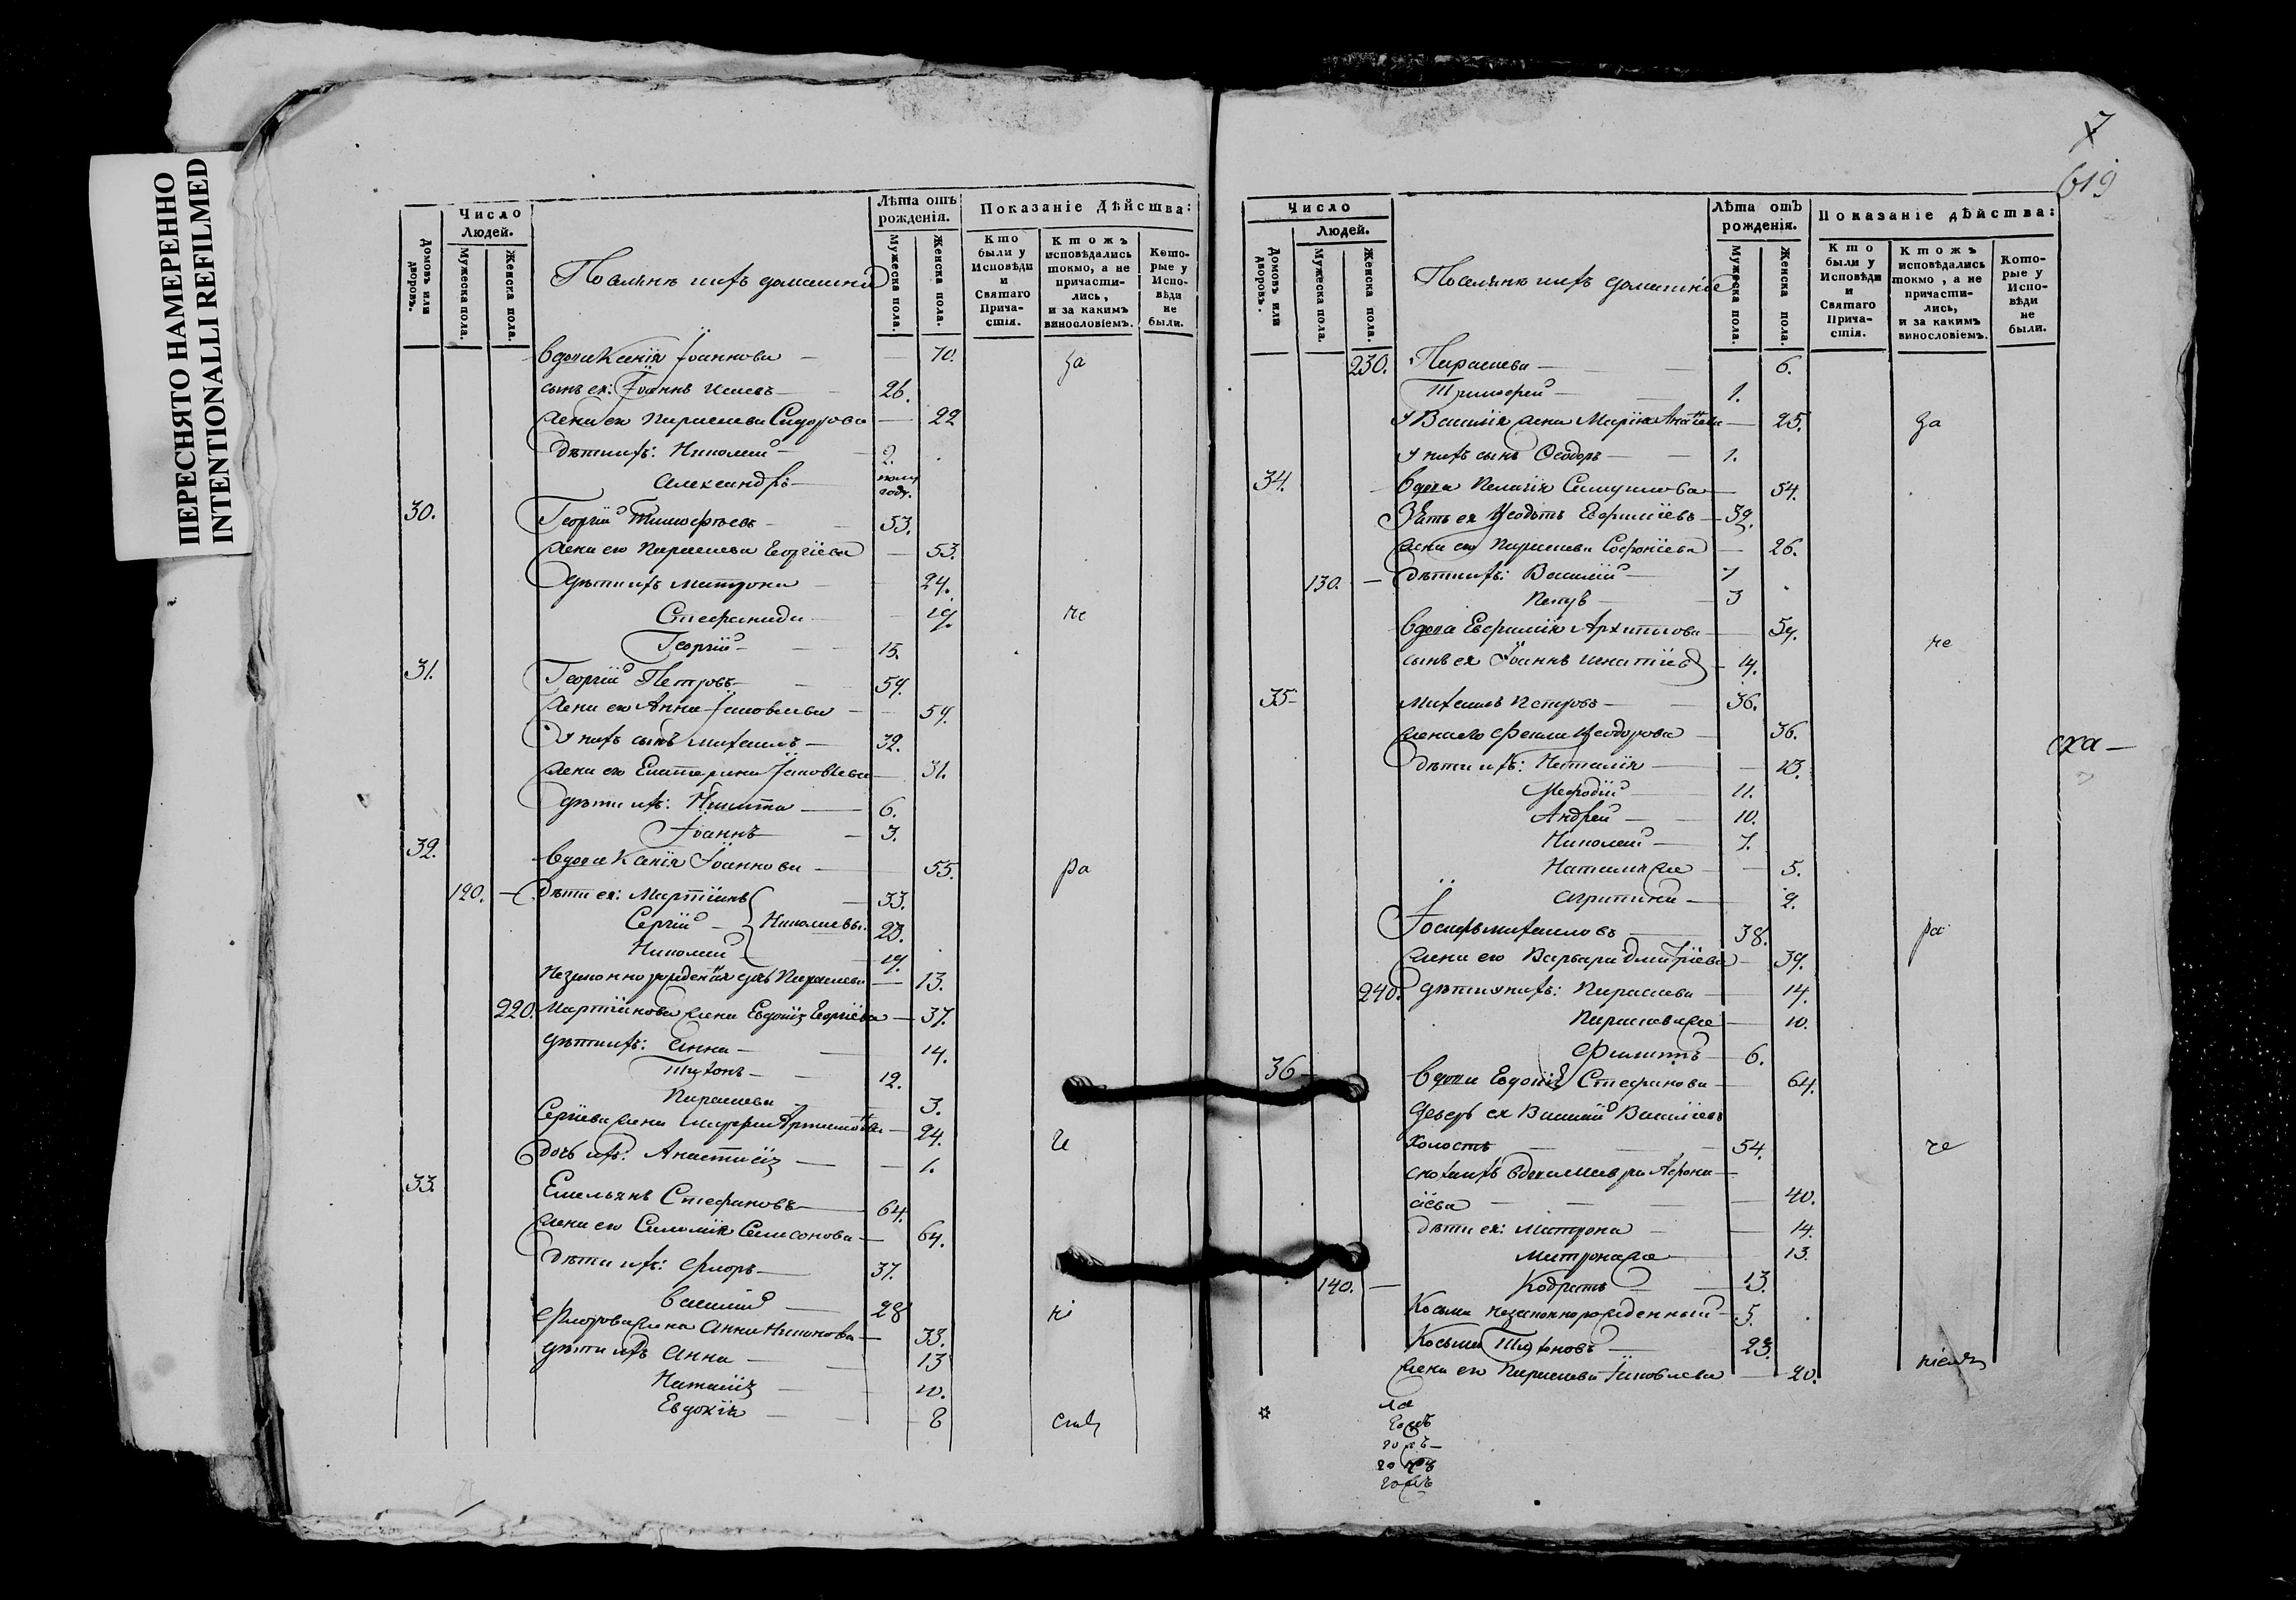 ПЕРЕСНЯТО НАМЕРЕННО
INTENTIONALLI REFILMED
Число
Людей.
Домовъ или дворовъ.
Мужеска пола.
Женска пола.
Поселяне ихъ домашнія
Лѣта отъ рожденія.
Мужеска пола.
Женска пола.
Показаніе Дѣйства:
Кто были у Исповѣди и Святаго Причастія.
Ктожъ исповѣдались токмо, а не причастились, и за какимъ винословіемъ.
Которые у Исповѣди не были.
вдова Ксенія Іоаннова — 70. за
сынъ ея: Іоаннъ — 26.
жена его Параскева Сидорова — 22
дѣти ихъ: Николай — 2.
Александръ — полугоду.
30. Георгій Тимофѣевъ — 53.
жена его Параскева Георгіева — 53.
дѣти ихъ Матрона — 24.
Стефанида — 19. не
Георгій — 15.
31. Георгій Петровъ — 59.
жена его Анна Іаковлева — 59.
У нихъ сынъ Михаилъ — 32.
жена его Екатерина Іаковлева — 31.
дѣти ихъ: Никита — 6.
Іоаннъ — 3.
32. вдова Ксенія Іоаннова — 55. ра
120. — Дѣти ея: Мартинъ — 33.
Сергій — Николаевы. 23.
Николай — 19.
незаконнорожденная дочь Параскева — 13.
220. Мартинова жена Евдокія Георгіева — 37.
дѣти ихъ: Анна — 14.
Тихонъ — 12.
Параскева — 3.
Сергіева жена Марфа — 24. че
дочь ихъ: Анастасія — 1.
33. Емельянъ Стефановъ — 64.
жена его Саломія Самсонова — 64.
дѣти ихъ: Флоръ — 37.
Василій — 28 ні
Флорова жена Анна — 33.
дѣти ихъ Анна — 13
Наталія — 10.
Евдокія — 8
7
619
Число
Людей.
Домовъ или дворовъ.
Мужеска пола.
Женска пола.
Поселяне ихъ домашніе
Лѣта отъ рожденія.
Мужеска пола.
Женска пола.
Показаніе дѣйства:
Кто были у Исповѣди и Святаго Причастія.
Ктожъ исповѣдались токмо, а не причастились, и за какимъ винословіемъ.
Которые у Исповѣди не были.
230. Параскева — 6.
Тимофей — 1.
У Василія жена Марія — 25. за
У нихъ сынъ Ѳеодоръ — 1.
34. вдова Пелагія Самуилова — 54.
Зять ея Ѳеодотъ Евфиміевъ — 32.
жена его Параскева Софоніева — 26.
130. — дѣти ихъ: Василій — 7
Петръ — 3
вдова Евфимія Архипова — 59.
сынъ ея Іоаннъ Игнатіевъ — 14. не
35 — Михаилъ Петровъ — 36.
жена его Фекла Ѳеодорова — 36.
дѣти ихъ: Наталія — 13.
сха —
Меѳодій — 11.
Андрей — 10.
Николай — 7.
Наталія же — 5.
Агрипина — 2.
Іосифъ Михаиловъ — 38. ра
жена его Варвара Дмитріева — 39.
240. дѣти у нихъ: Параскева — 14.
Параскева же — 10.
Филиппъ — 6.
36 — вдова Евдокія Стефанова — 64.
деверь ея Василій Василіевъ
холостъ — 54. че
сноха ихъ вдова Мавра Аѳона-
сіева — 40.
дѣти ея: Матрона — 14.
Матрона же — 13.
140. — Кодратъ — 13.
Косьма незаконнорожденный — 5.
Косьма Тихоновъ — 23.
жена его Параскева Іаковлева — 20.